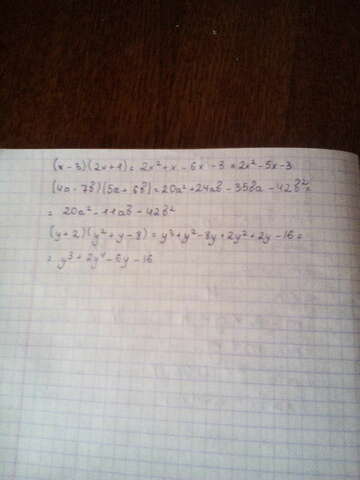 (x - 3)(2x+1) = 2x² + x - 6x - 3 = 2x² - 5x - 3
(4a - 7b)(5a + 6b) = 20a² + 24ab - 35ba - 42b² =
= 20a² - 11ab - 42b²
(y + 2)(y² + y - 8) = y³ + y² - 8y + 2y² + 2y - 16 =
= y³ + 2y² - 6y - 16